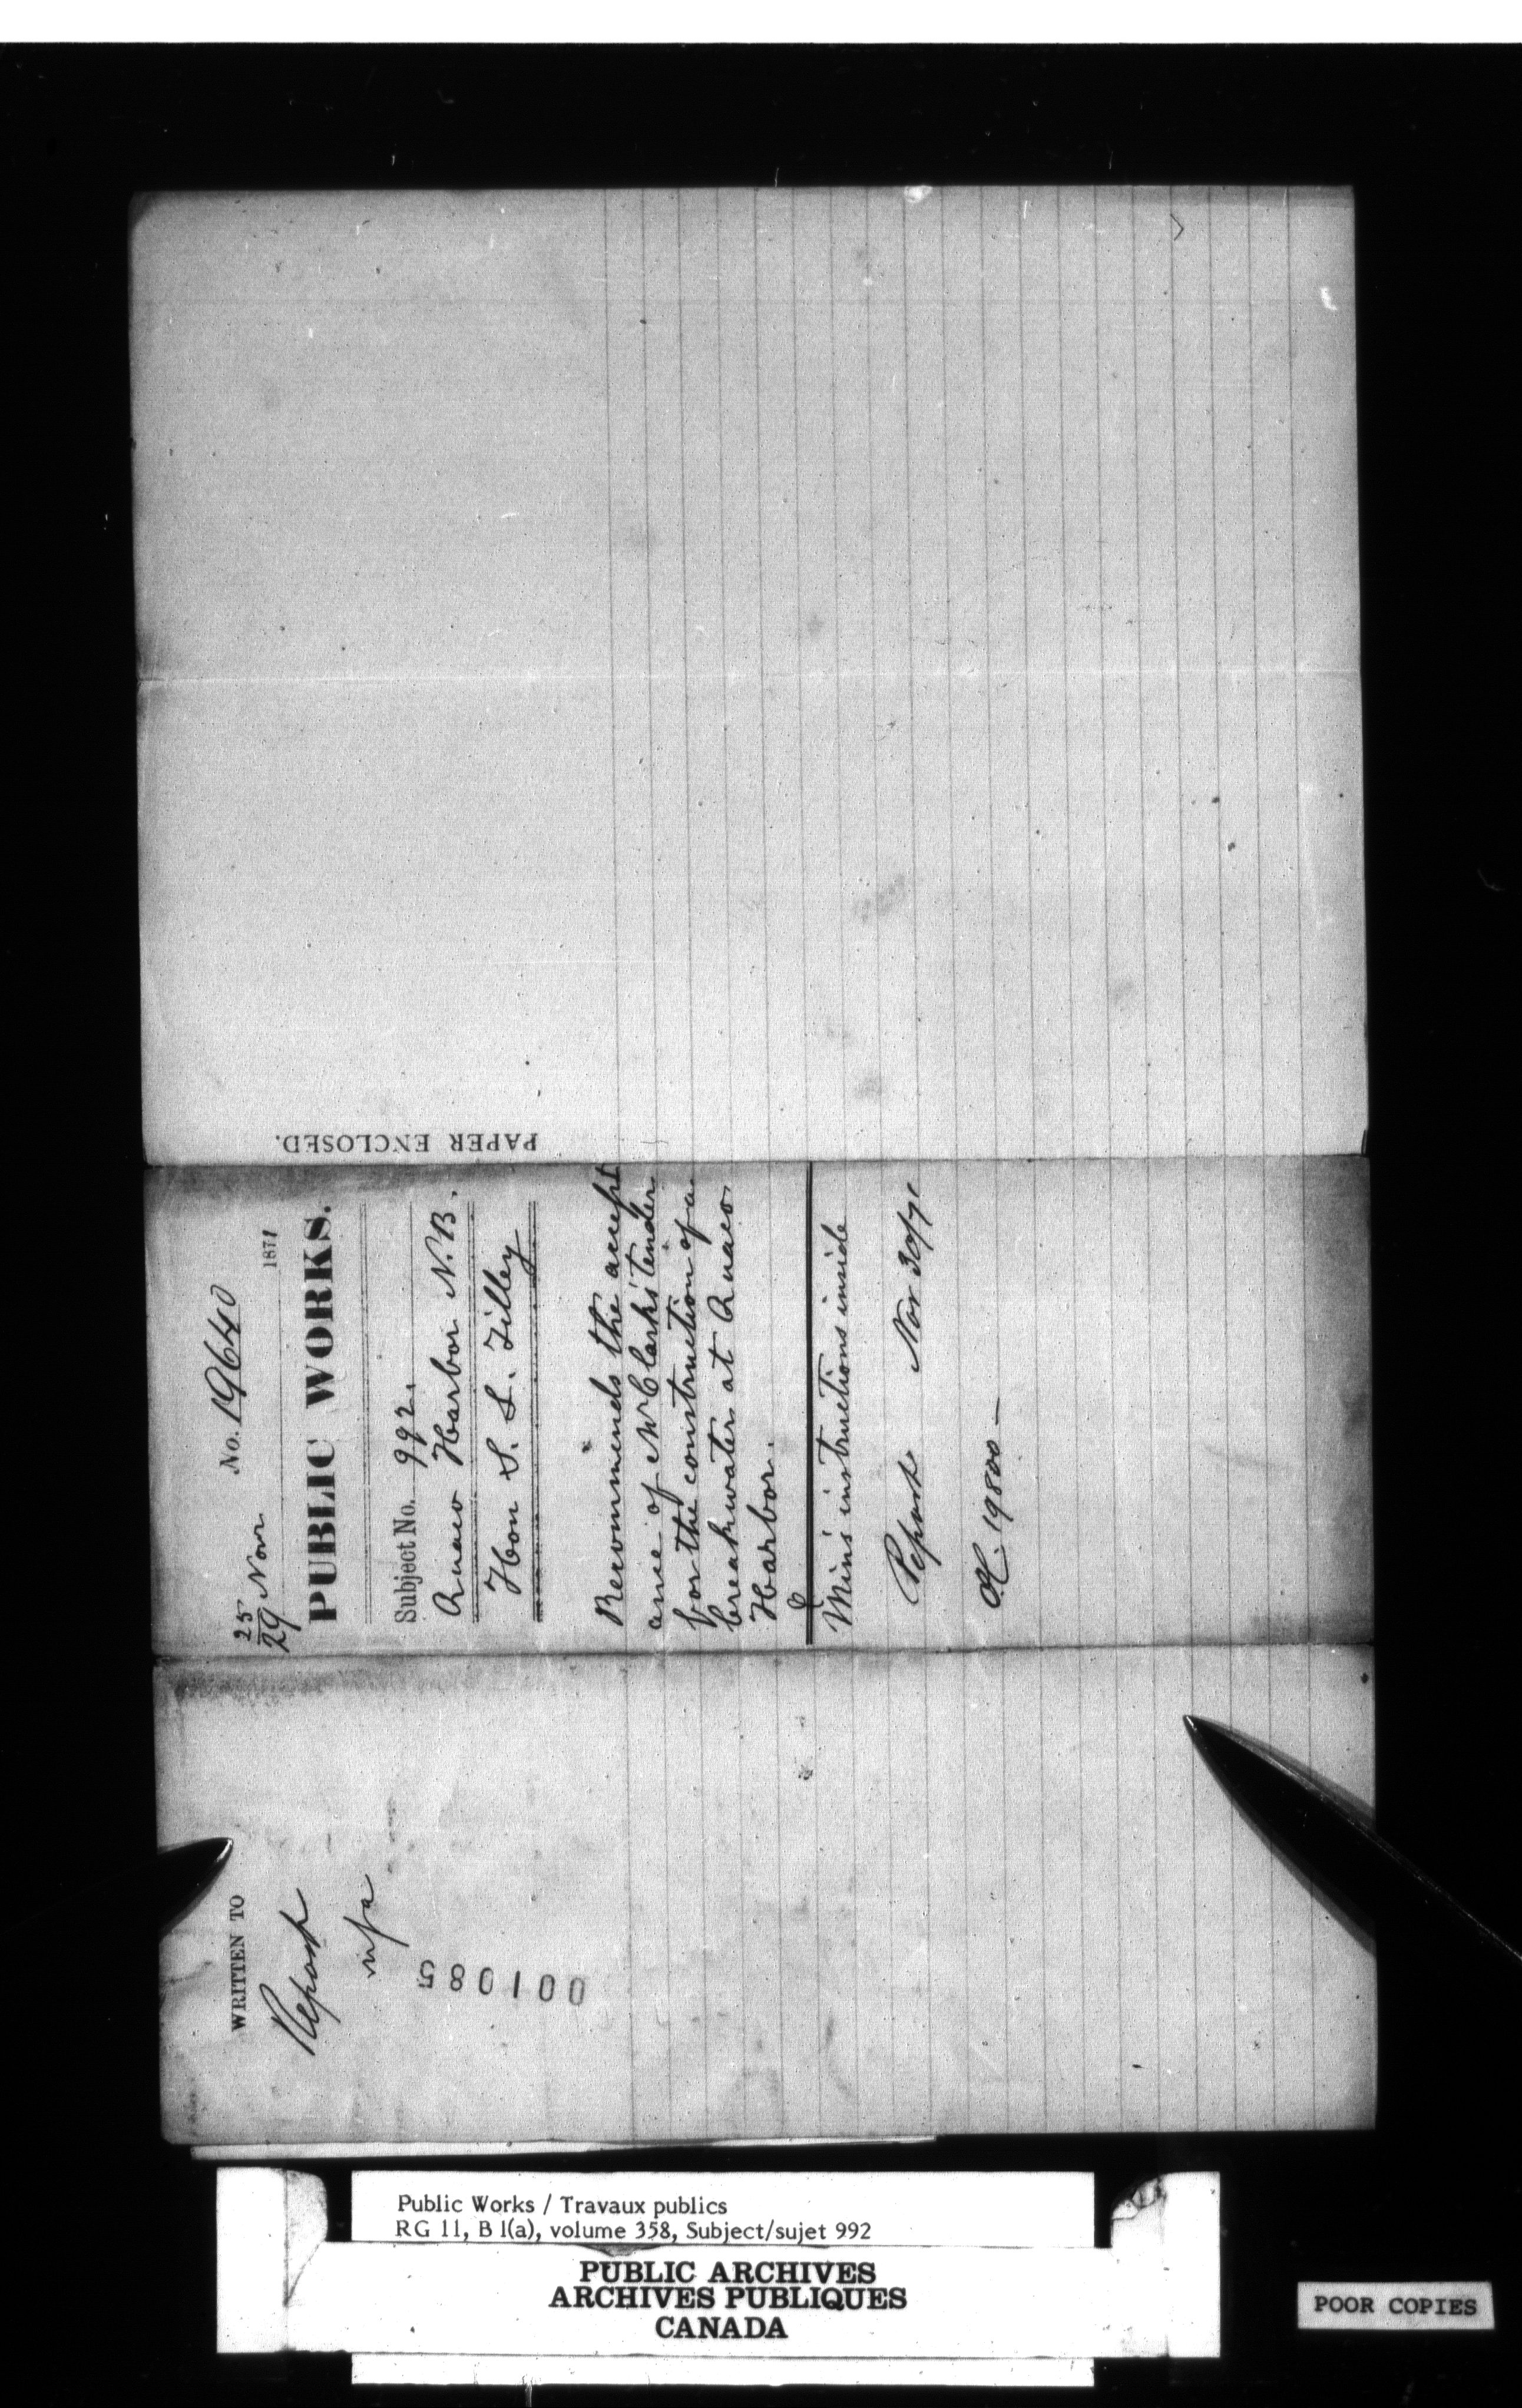 No. 19640
25
29 Novr 1871
PUBLIC WORKS.
Subject No. 992.
Quaco Harbor N.B.
Hon S. L. Tilley
Recommends the accept
ance of McClarks tender
for the construction of a
breakwater at Quaco
Harbor.
Mins instructions inside
Report Nov 30/71
19800 —
PAPER ENCLOSED.
WRITTEN TO
Report
001085
Public Works / Travaux publics
RG 11, B 1(a), volume 358, Subject/sujet 992
PUBLIC ARCHIVES
ARCHIVES PUBLIQUES
CANADA
POOR COPIES